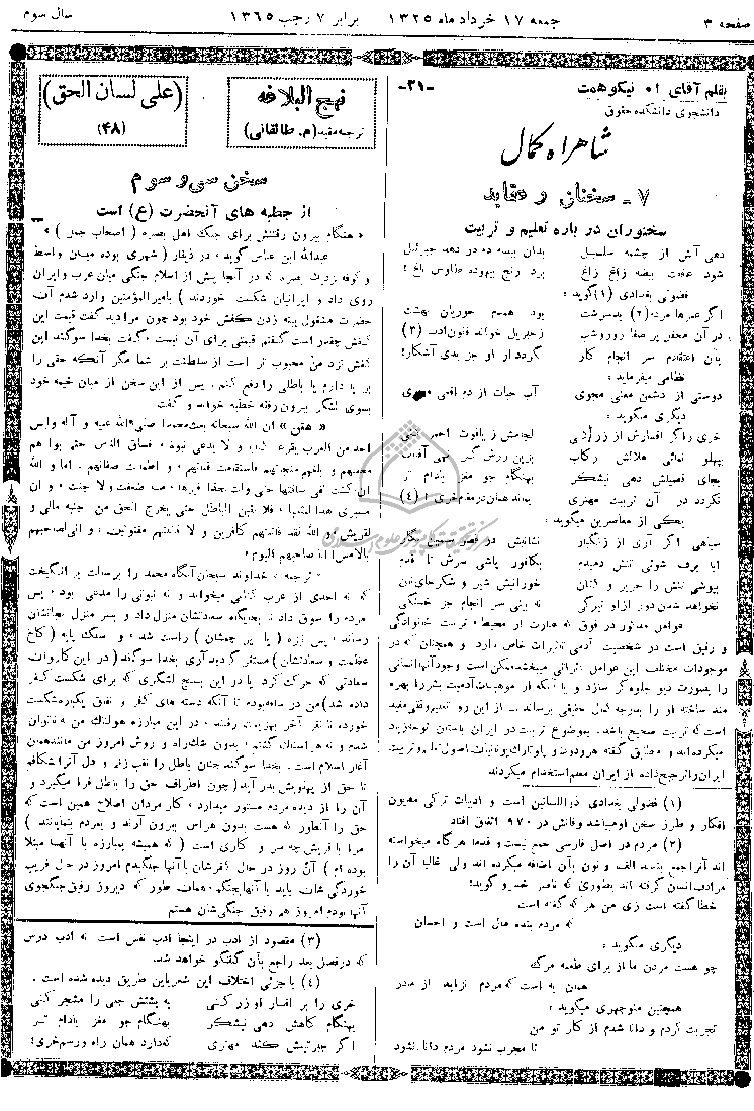 صفحه ۳
جمعه ۱۷ خرداد ماه ۱۳۲۵ برابر ۷ رجب ۱۳۶۵
سال سوم
بقلم آقای ا. نیکو همت
-۳۱-
دانشجوی دانشکده حقوق
شاهراه کمال
۷ - سخنان و عقاید
سخنوران در باره تعلیم و تربیت
دهی آش از چشمه سلسبیل بدان بیضه دم در دهد جبرئیل
شود عاقبت بیضه زاغ زاغ برد رنج بیهوده طاوس باغ !
فضولی بغدادی (۱) گوید :
اگر عمرها مردم (۲) بدسرشت بود همدم حوریان بهشت
در آن محفل پر صفا روز و شب ز جبریل خواند فنون ادب (۳)
بر آن اعتقادم سر انجام کار نگردد از او جز بدی آشکار!
نظامی میفرماید :
دوستی از دشمن معنی مجوی آب حیات از دم افعی مجوی
دیگری میگوید :
خری را گر افسارش از زر زنی لجامش ز یاقوت احمر کنی
پهلو نمائی هلالش رکاب
بجای فصیلش دهی نیشکر بهنگام جو مغز بادام تر
نگردد در آن تربیت مهتری بماند همان در مقام خری ! (۴)
یکی از معاصرین میگوید :
سیاهی اگر آری از زنگبار نشانیش در قصر سیمین نگار
ابا برف شوئی تنش دمبدم بکافور پاشی سرش تا قدم
بپوشی تنش را حریر و کتان خورانیش شیر و شکر هر زمان
نخواهد شدن دور از او تیرگی نه بینی سر انجام جز خستگی
عوامل مذکور در فوق که عبارت از محیط ، تربیت خانوادگی
و رفیق است در شخصیت آدمی تاثیرات خاص دارد و همچنان که در
موجودات مختلف این عوامل اثراتی میبخشد ممکن است وجود آنها انسانی
را بصورت دیو جلوه گر سازد و یا آنکه از موهبات آدمیت بشر را بهره
مند ساخته او را بدرجه کمال حقیقی برساند . از این رو تعلیم وقتی مفید
است که تربیت صحیح باشد . بموضوع تربیت در ایران باستان توجه زیاد
میکرده اند و مطابق گفته هرودوت و پلوتارک یونانیان اصول تعلیم و تربیت
ایران را ترجیح داده از ایران معلم استخدام میکردند
(۱) فضولی بغدادی ذواللسانین است و ادبیات ترکی مدیون
افکار و طرز سخن او میباشد وفاتش در ۹۷۰ اتفاق افتاد
(۲) مردم در اصل فارسی جمع نیست و قدما هرگاه میخواسته
اند آنرا جمع بندند الف و نون بآن اضافه میکرده اند ولی غالبا آن را
مرادف انسان گرفته اند بطوری که ناصر خسرو گوید:
خطا گفته است زی من هر که گفته است
که مردم بنده مال است و احسان
دیگری میگوید :
چو هست مردن ما از برای طعمه مرگ
همان به است که مردم نزاید از مادر
همچنین منوچهری میگوید :
تجربت کردم و دانا شدم از کار تو من
تا مجرب نشود مردم دانا نشود
نهج البلاغه
ترجمه مقید (م. طالقانی)
(علی لسان الحق)
(۴۸)
سخن سی و سوم
از خطبه های آنحضرت (ع) است
« هنگام بیرون رفتنش برای جنگ اهل بصره ( اصحاب جمل ) »
عبدالله ابن عباس گوید ، در ذیقار ( شهری بوده میان واسط
و کوفه نزدیک بصره که در آنجا پیش از اسلام جنگی میان عرب و ایران
روی داد و ایرانیان شکست خوردند ) بامیرالمؤمنین وارد شدم آن
حضرت مشغول پینه زدن کفش خود بود چون مرا دید گفت قیمت این
کفش چقدر است گفتم قیمتی برای آن نیست ، گفت بخدا سوگند این
کفش نزد من محبوب تر است از سلطنت بر شما مگر آنکه حقی را
بر پا دارم یا باطلی را دفع کنم . پس از این سخن از میان خیمه خود
بسوی لشگر بیرون رفته خطبه خواند و گفت
« متن » ان الله سبحانه بعث محمدا صلی الله علیه و آله ولیس
احد من العرب یقرء کتابا و لا یدعی نبوة ، فساق الناس حتی بوا هم
محلتهم و بلغهم منجاتهم فاستقامت قناتهم ، و اطمئنت صفاتهم . اما و الله
ان کنت لفی ساقتها حتی ولت بحذافیرها ، ما ضعفت ولا جبنت ، و ان
مسیری هذا لمثلها ، فلا نقبن الباطل حتی یخرج الحق من جنبه مالی و
لقریش ، و الله لقد قاتلتهم کافرین و لا قاتلنهم مفتونین ، و انی لصاحبهم
بالامس کما انا صاحبهم الیوم !
« ترجمه » خداوند سبحان آنگاه محمد را برسالت بر انگیخت
که نه احدی از عرب کتابی میخواند و نه نبوتی را مدعی بود ، پس
مردم را سوق داد تا بجایگاه سعادتشان منزل داد و بسر منزل نجاتشان
رساند ، پس نیزه ( یا پرچمشان ) راست شد ، و سنگ پایه ( کاخ
عظمت و سعادتشان ) مستقر گردید آری بخدا سوگند ( در این کاروان
سعادتی که حرکت کرد یا در این بسیج لشگری که برای شکست کفر
داده شد ) من در ساقه بودم تا آنکه دسته های کفر و نفاق یکباره شکست
خورده تا نفر آخر بهزیمت رفتند ، در این مبارزه هولناک من نه ناتوان
شدم و نه هراسناک گشتم ، بدون شک راه و روش امروز من مانند همان
آغاز اسلام است . بخدا سوگند چنان باطل را نقب زنم و دل آنرا شکافم
تا حق از پهلویش بدر آید ( چون اطراف حق را باطل فرا میگیرد و
آن را از دیده مردم مستور میدارد ، کار مردان اصلاح همین است که
حق را آنطور که هست بدون هراس بیرون آرند و بمردم بنمایانند )
مرا با قریش چه سر و کاری است ( که همیشه بمبارزه با آنها مبتلا
بوده ام ) آن روز در حال کفرشان با آنها جنگیدم امروز در حال فریب
خوردگی شان باید با آنها بجنگم ، همان طور که دیروز رفیق جنگجوی
آنها بودم امروز هم رفیق جنگی شان هستم
(۳) مقصود از ادب در اینجا ادب نفس است نه ادب درس
که در فصل بعد راجع بآن گفتگو خواهد شد.
(۴) با جزئی اختلاف این شعر باین طریق دیده شده است .
خری را بر افسار او زر کنی به پشتش جلی را مشجر کنی
بهنگام کاهش دهی نیشکر بهنگام جو مغز بادام تر
اگر جبرئیلش کند مهتری ندارد همان راه و رسم خری!